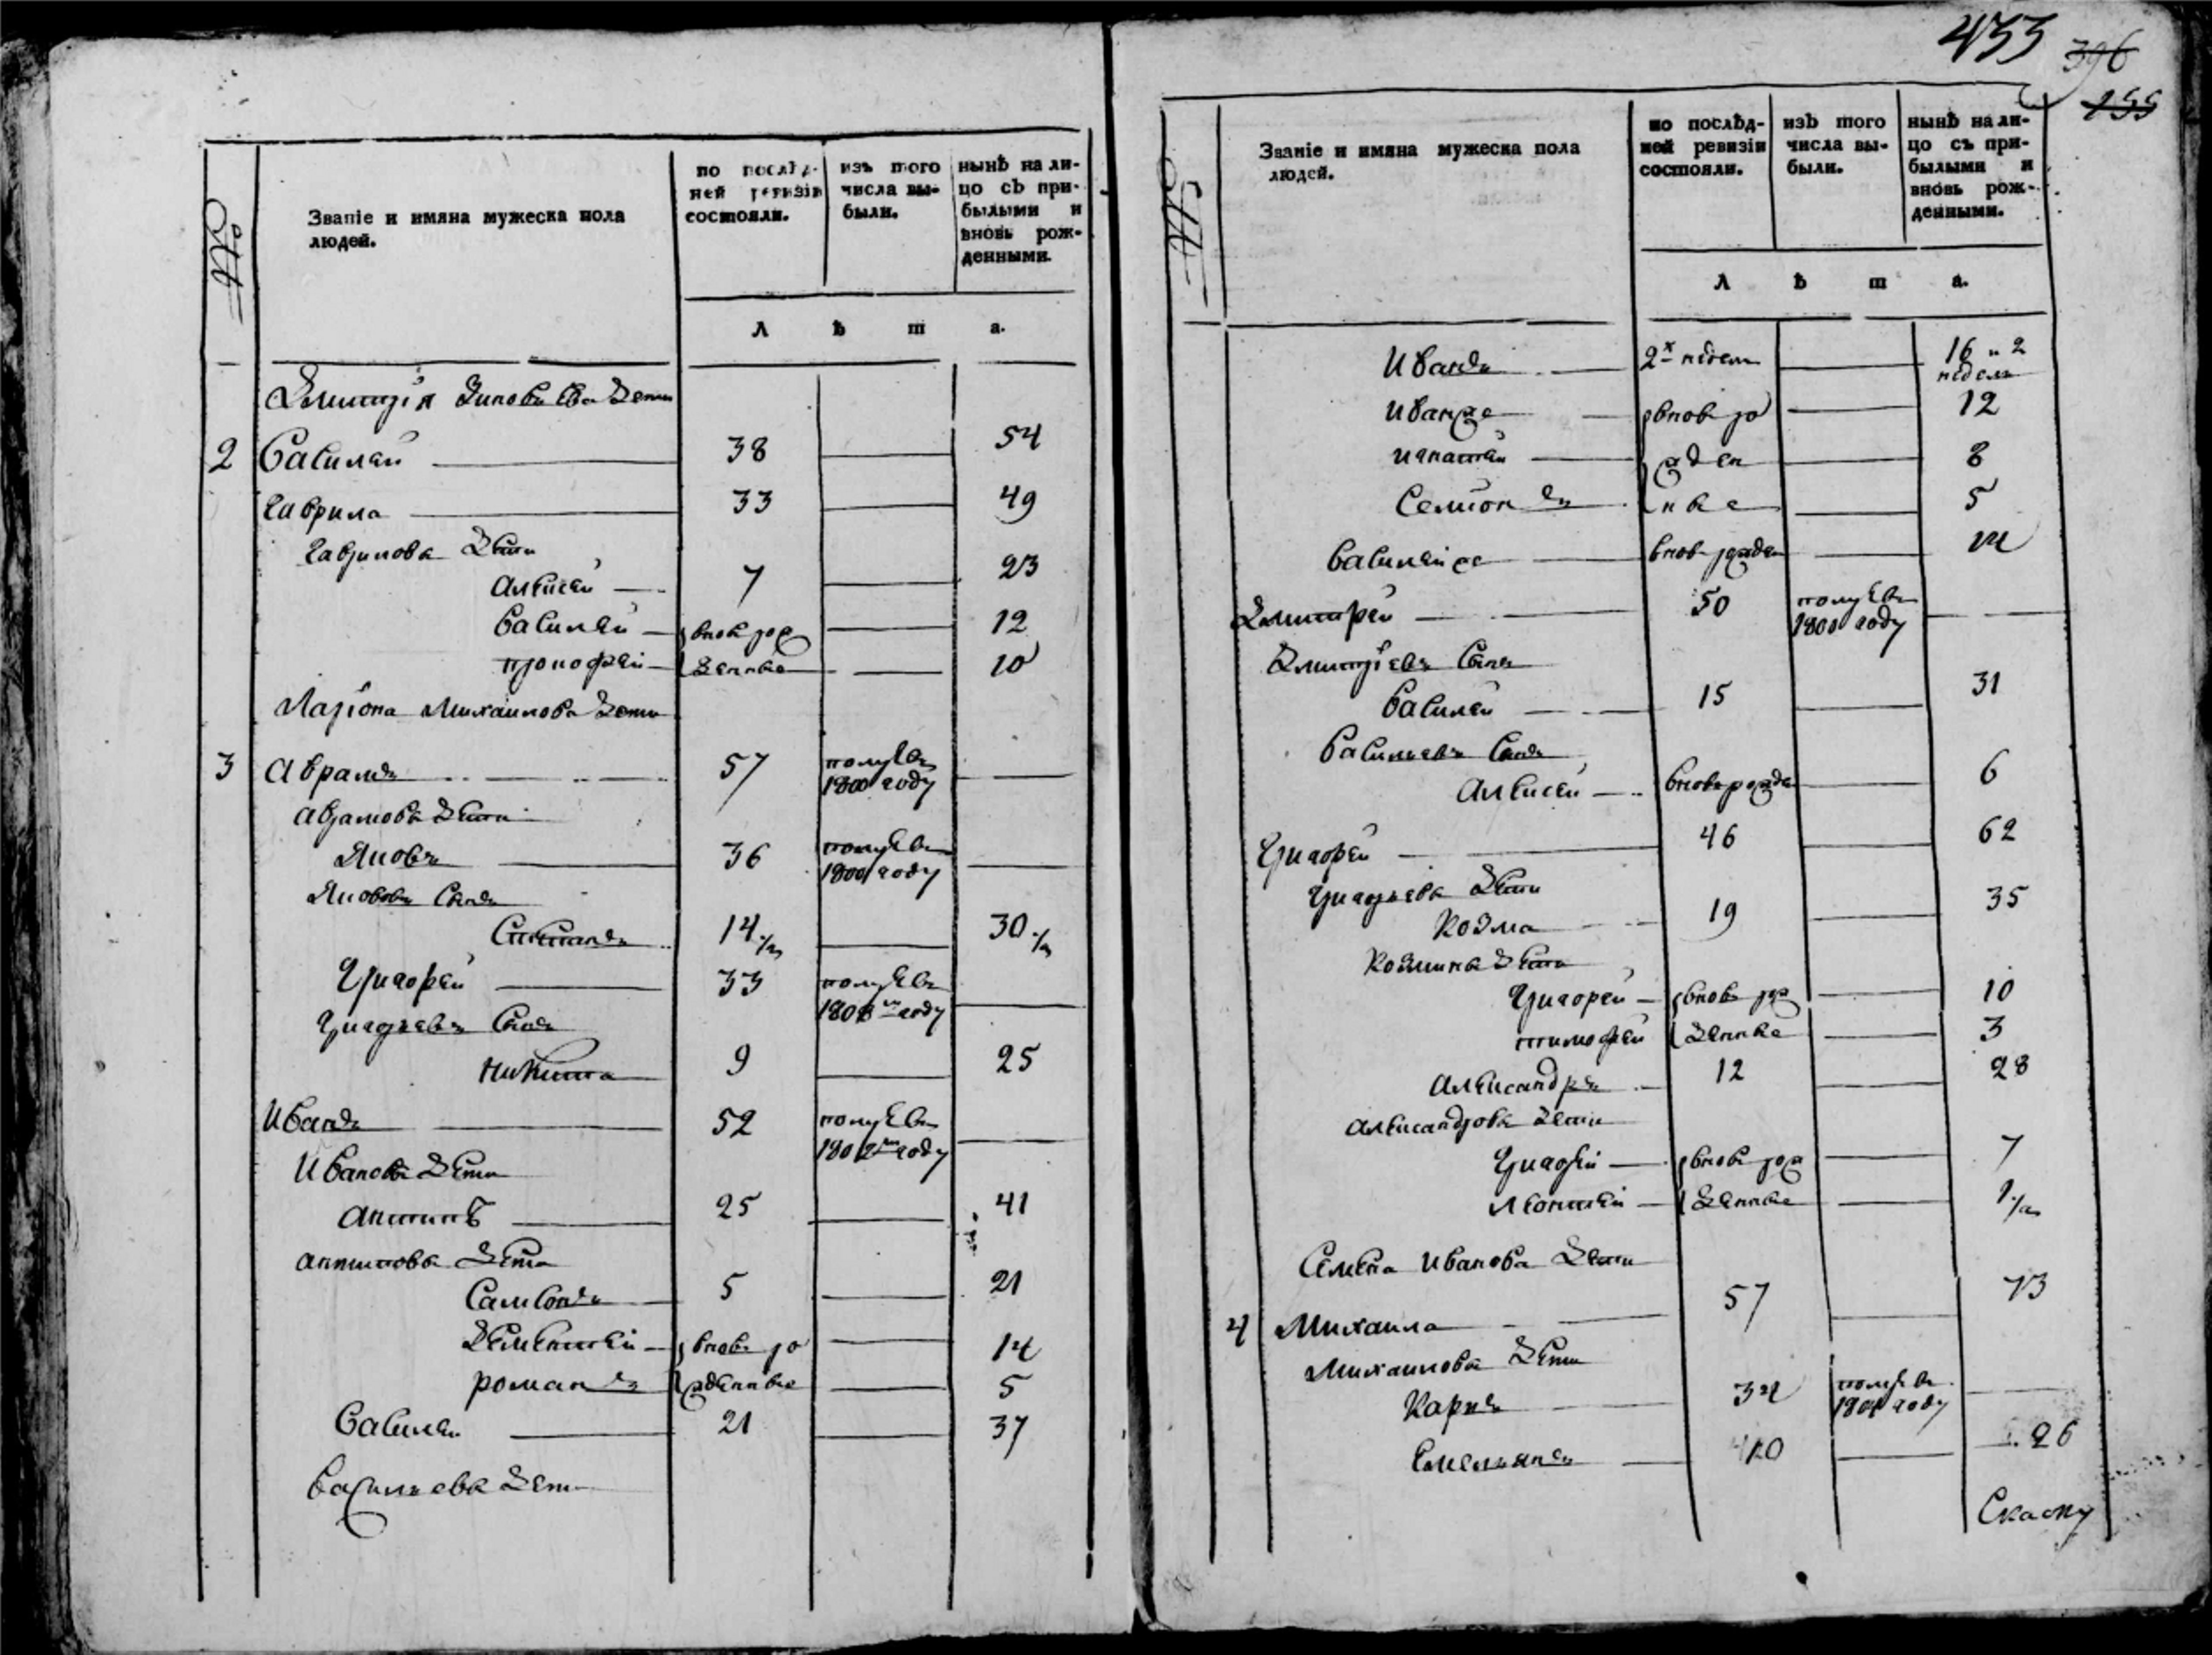 Званіе и имяна мужеска пола
людей.
по послѣд-
ней ревизіи
состояли.
изъ того
числа вы-
были.
нынѣ на ли-
цо съ при-
былыми и
вновь рож-
денными.
лѣта.
Дмитрія Зиновьева дети
2 Василей 38 54
Гаврила 33 49
Гаврилова дети
Алексей 7 23
Василей вновь рож 12
денные 10
Лариона Михайлова дети
3 Аврамъ 57 умре въ 1800 году
Аврамова дети
Яковъ 36 году
Яковлевъ сынъ
Степанъ 14 30
Григорей 33 году
Григорьевъ сынъ
Никита 9 25
Иванъ 52 1802 году
Иванова дети
Антипъ 25 41
Антипова дети
Самсонъ 5 21
Дементей вновь ро 14
Романъ жденные 5
Василей 21 37
Васильева дети
433
396
155
Званіе и имяна мужеска пола
людей.
по послѣд-
ней ревизіи
состояли.
изъ того
числа вы-
были.
нынѣ на ли-
цо съ при-
былыми и
вновь рож-
денными.
лѣта.
Иванъ 2х недель 16 и 2
недель
Иванже вновь ро 12
Игнатей жден 8
Семионъ ные 5
Василейже вновь рожден 14
Дмитрей 50 1800 году
Дмитріевъ сынъ
Василей 15 31
Васильевъ сынъ
Алексей вновь рожде 6
Григорей 46 62
Григорьева дети
Козма 19 35
Козмина дети
Григорей вновь рож 10
Тимофей денные 3
Александръ 12 28
Александрова дети
Григорей вновь рож 7
Леонтей денные 1
Семена Иванова дети
4 Михаила 57 73
Михайлова дети
Карпъ 34 году
Емельянъ 10 26
Скаску